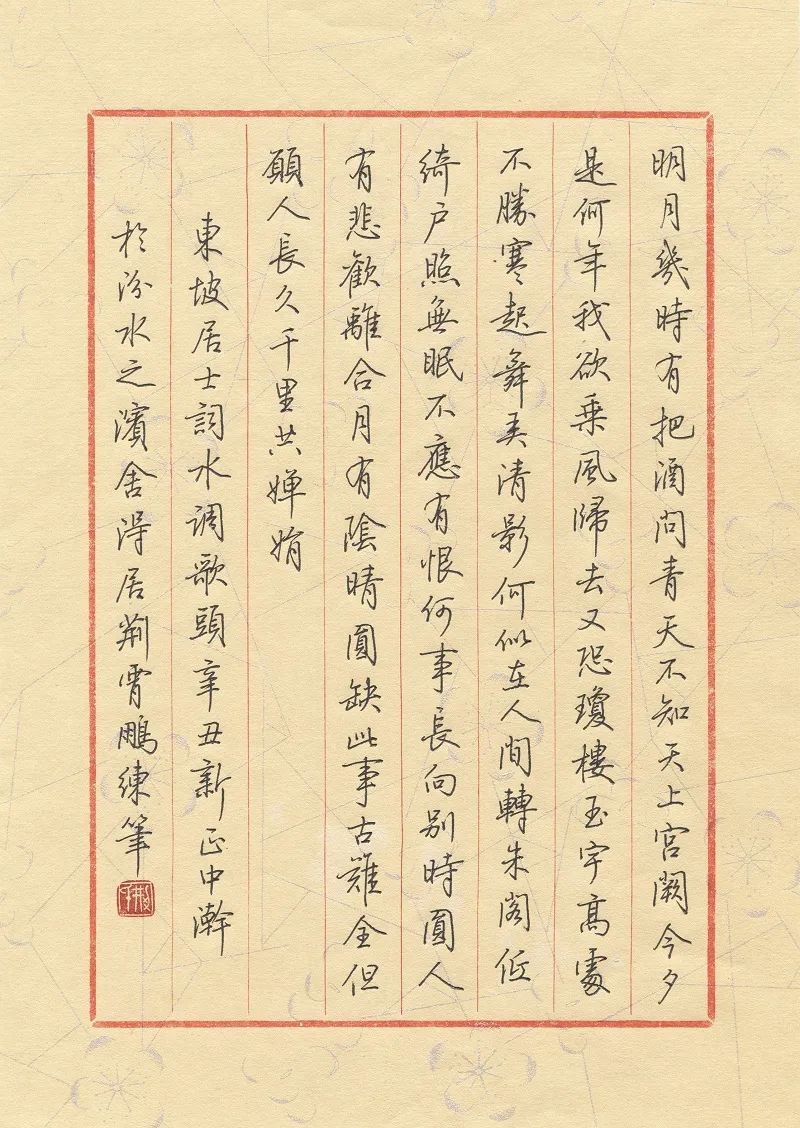 明月幾時有把酒問青天不知天上宮闕今夕
是何年我欲乗風歸去又恐瓊樓玉宇高處
不勝寒起舞弄清影何似在人間轉朱閣低
綺户照無眠不應有恨何事長向别時圓人
有悲歡離合月有陰晴圓缺此事古難全但
願人長久千里共嬋娟
東坡居士詞水调歌頭辛丑新正中澣
於汾水之濱舍得居荆霄鵬練筆